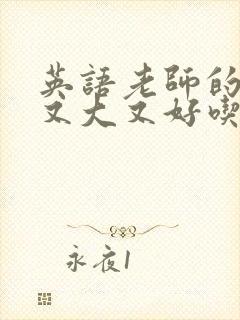 英語老師的
又大又好喫
永夜1